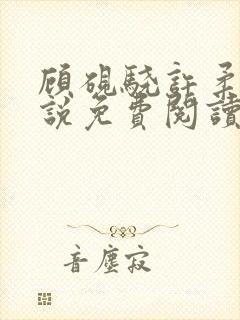 顾砚骁许柔
說免費閱讀
音塵寂